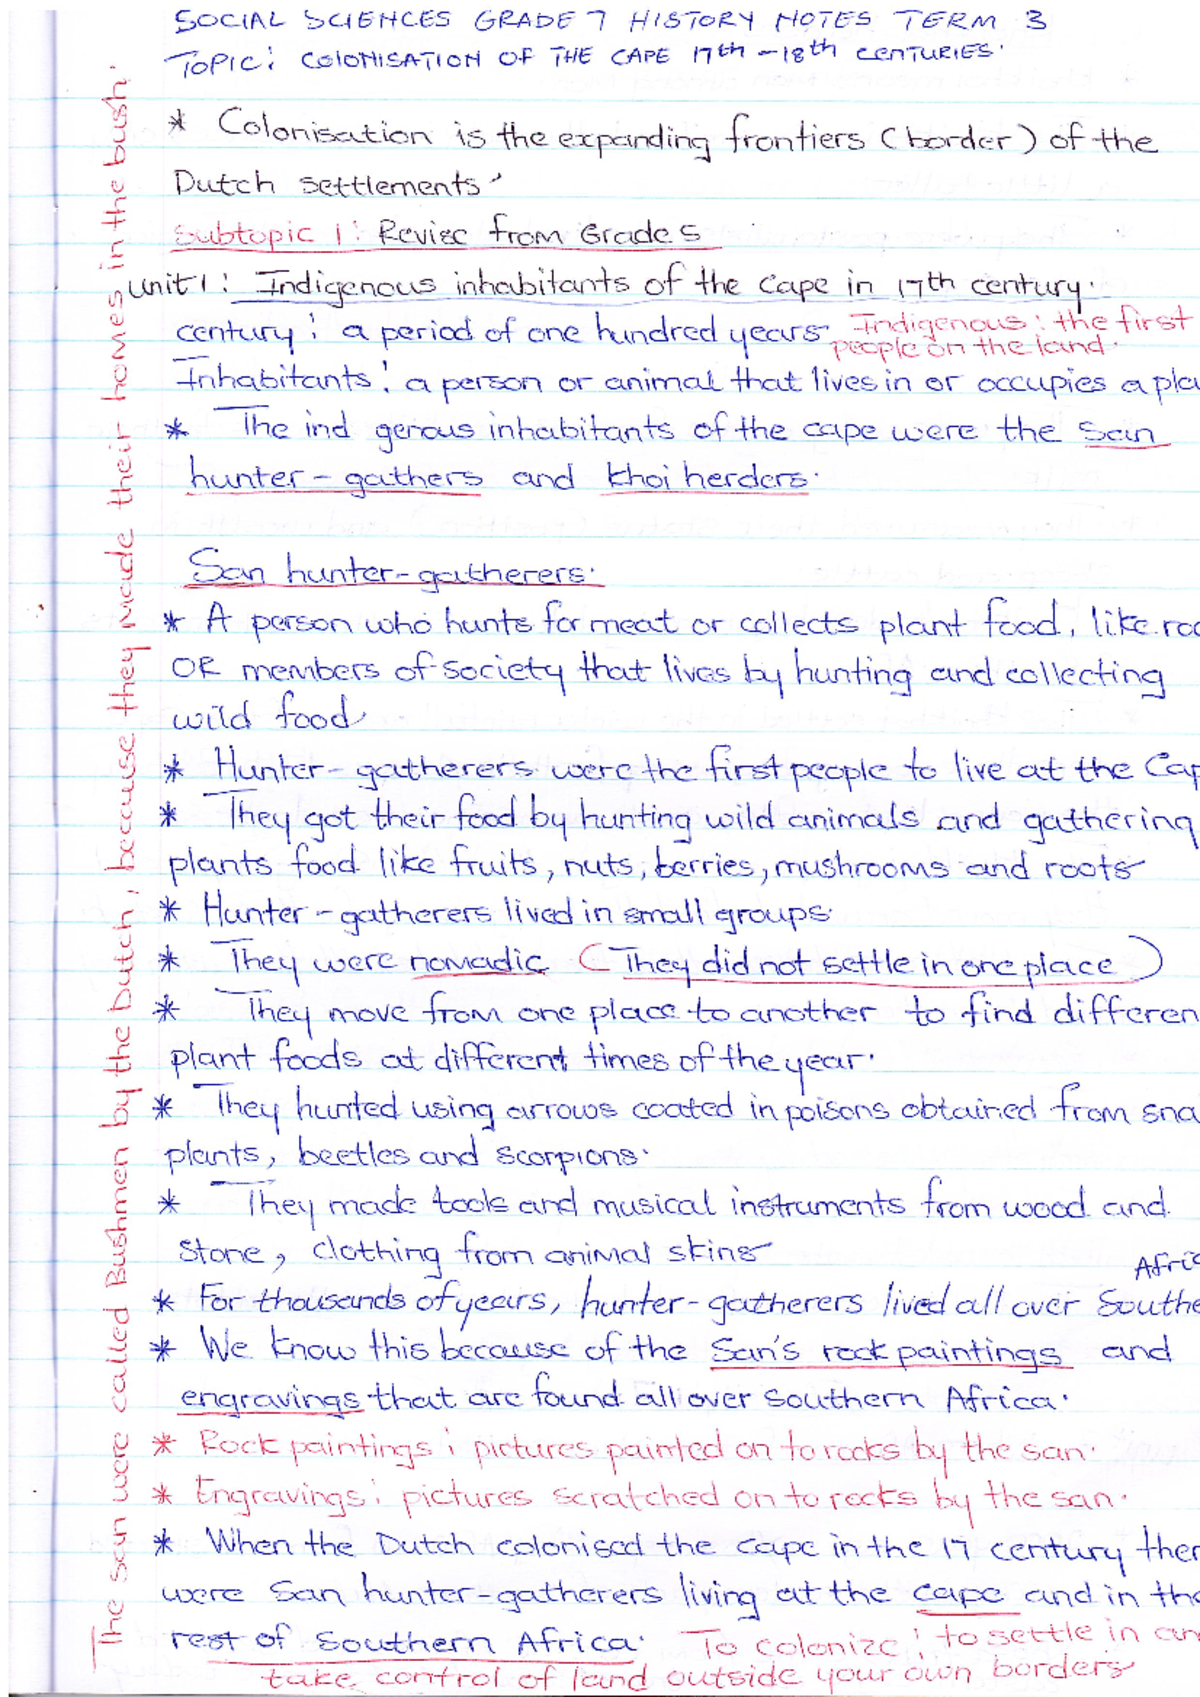 SOCIAL SCIENCES GRADE 7 HISTORY NOTES TERM 3
TOPIC: COLONISATION OF THE CAPE 17th - 18th CENTURIES.
* Colonisation is the expanding frontiers (border) of the
Dutch settlements.
Subtopic 1: Revise from Grade 5
Unit 1: Indigenous inhabitants of the Cape in 17th century.
century: a period of one hundred years. Indigenous: the first
people on the land.
Inhabitants: a person or animal that lives in or occupies a pla
* The ind genous inhabitants of the cape were the San
hunter-gathers and Khoi herders.
San hunter-gatherers.
* A person who hunts for meat or collects plant food, like roo
OR members of society that lives by hunting and collecting
wild food
* Hunter-gatherers were the first people to live at the Cap
* They got their food by hunting wild animals and gathering
plants food like fruits, nuts, berries, mushrooms and roots
* Hunter-gatherers lived in small groups.
* They were nomadic (They did not settle in one place)
* They move from one place to another to find differen
plant foods at different times of the year.
* They hunted using arrows coated in poisons obtained from sna
plants, beetles and scorpions.
* They made tools and musical instruments from wood and
stone, clothing from animal skins
Afric
* For thousands of years, hunter-gatherers lived all over Southe
* We know this because of the San's rock paintings and
engravings that are found all over Southern Africa.
* Rock paintings: pictures painted on to rocks by the san.
* Engravings: pictures scratched on to rocks by the san.
* When the Dutch colonised the cape in the 17 century ther
were San hunter-gatherers living at the cape and in the
rest of Southern Africa. To colonize: to settle in an
take control of land outside your own borders
The san were called Bushmen by the Dutch, because they made their homes in the bush.